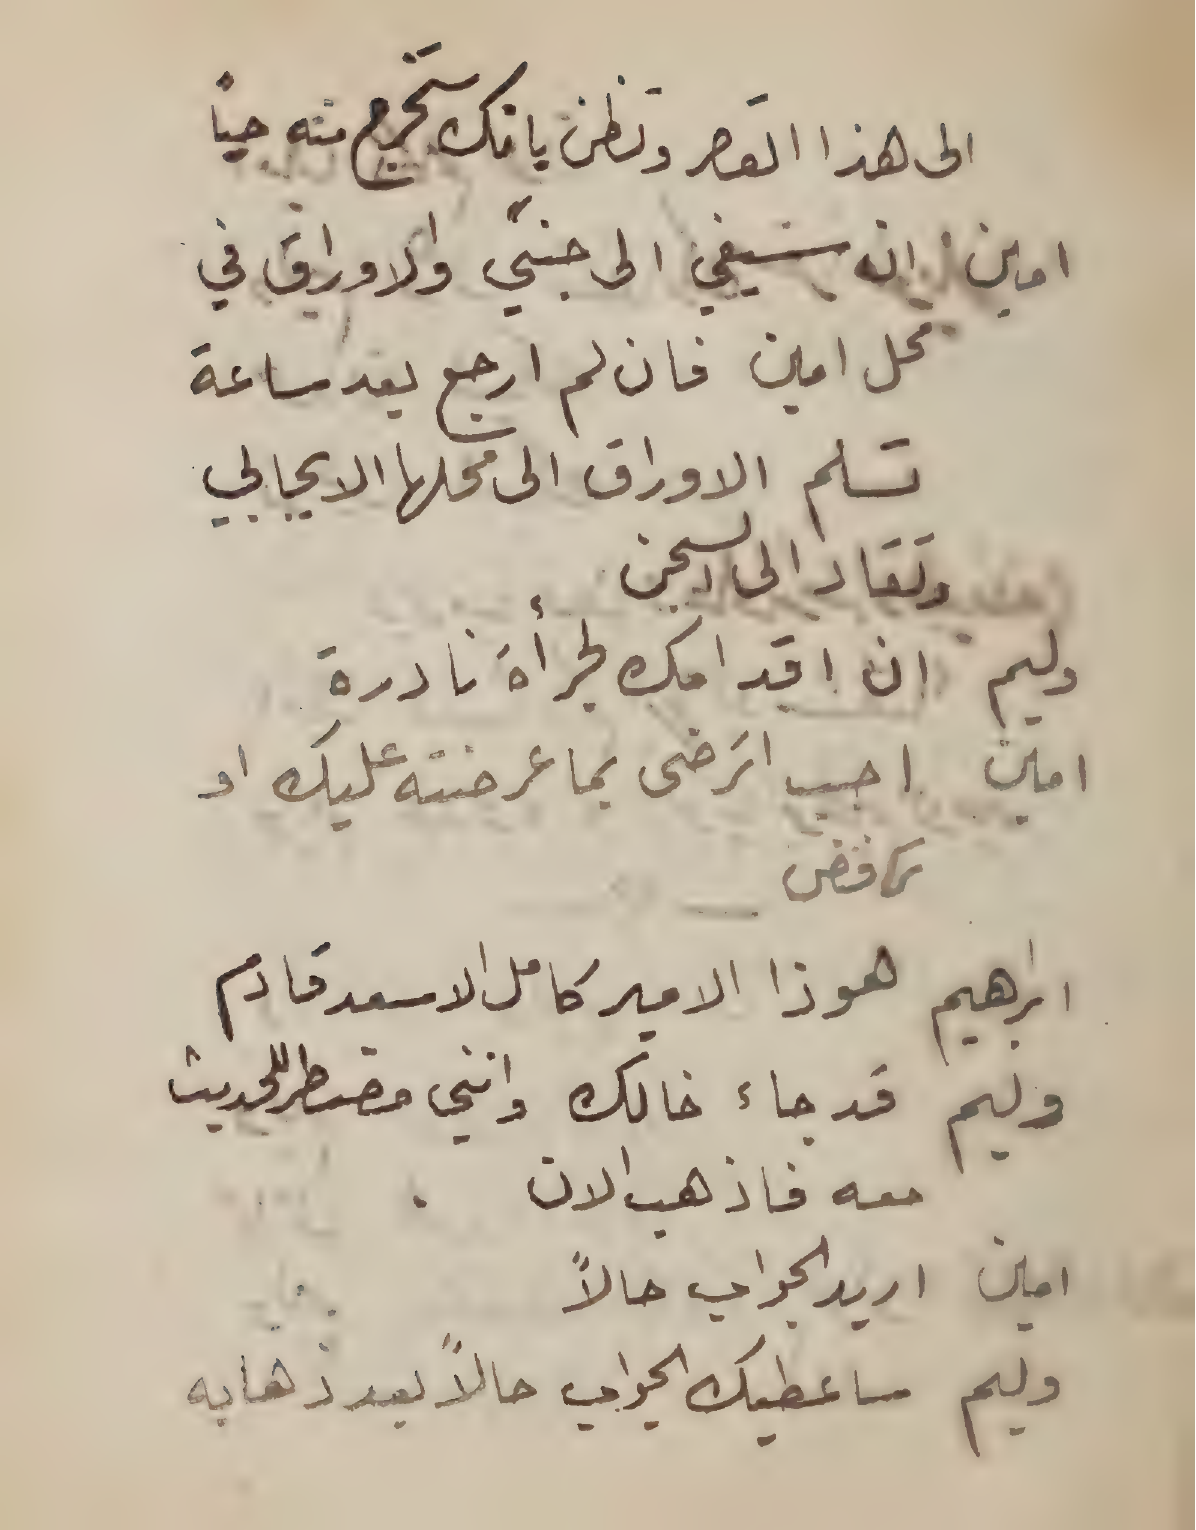 الى هذا القصر وتظن بانك ستخرج منه حياً
امين ان سيفي الى جنبي والاوراق في
محل امين فان لم ارجع بعد ساعة
تسلم الاوراق الى محلها الايجابي
وتقاد الى السجن
وليم ان اقدامك لجرأة نادرة
امين اجب اترضى بما عرضته عليك او
ترفض
ابرهيم هوذا الامير كامل الاسعد قادم
وليم قد جاء خالك وانني مضطر للحديث
معه فاذهب الان
امين اريد الجواب حالاً
وليم ساعطيك الجواب حالاً بعد ذهابه